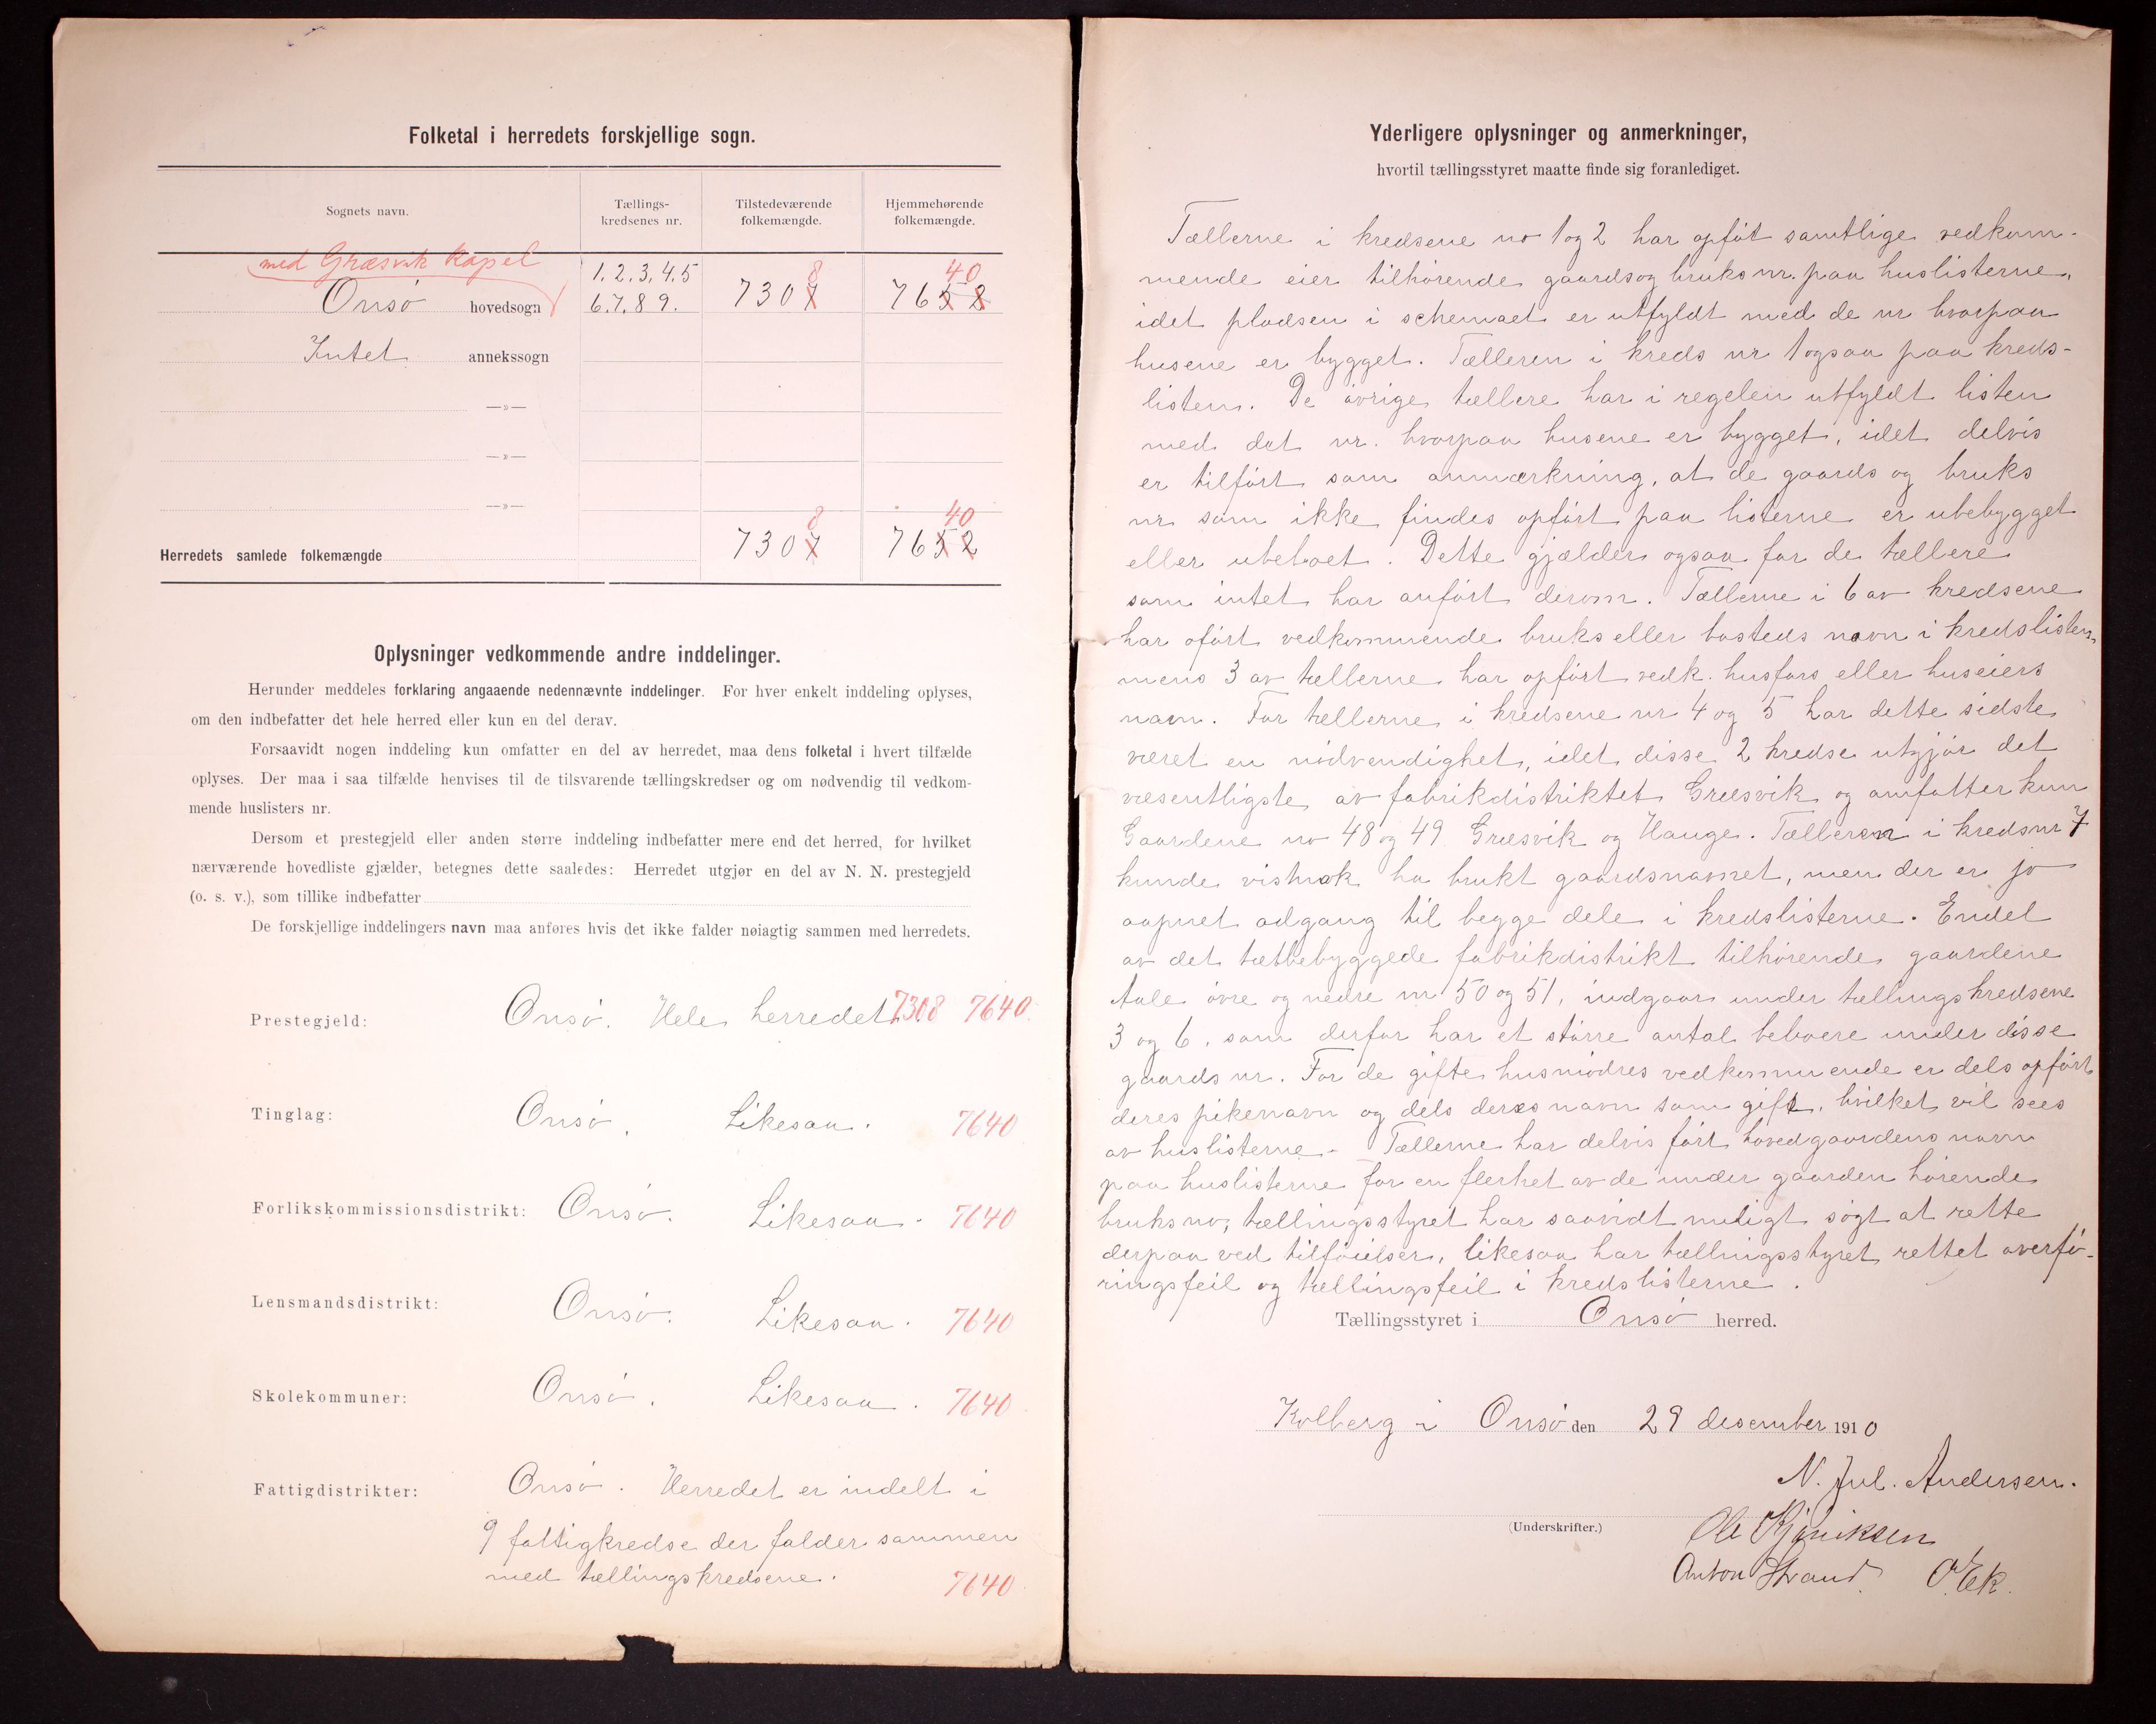 Folketal i herredets forskjellige sogn.
Sognets navn.
Tællings-
kredsenes nr.
Tilstedeværende
folkemængde.
Hjemmehørende
folkemængde.
med Græsvik Kapel
1.2.3.4.5
8
40
Onsö hovedsogn 6.7.8 9. 7307 7652
Intet annekssogn
—»—
—»—
—»—
8
40
Herredets samlede folkemængde 7307 7652
Oplysninger vedkommende andre inddelinger.
Herunder meddeles forklaring angaaende nedennævnte inddelinger. For hver enkelt inddeling oplyses,
om den indbefatter det hele herred eller kun en del derav.
Forsaavidt nogen inddeling kun omfatter en del av herredet, maa dens folketal i hvert tilfælde
oplyses. Der maa i saa tilfælde henvises til de tilsvarende tællingskredser og om nødvendig til vedkom-
mende huslisters nr.
Dersom et prestegjeld eller anden større inddeling indbefatter mere end det herred, for hvilket
nærværende hovedliste gjælder, betegnes dette saaledes: Herredet utgjør en del av N. N. prestegjeld
(o. s. v.), som tillike indbefatter
De forskjellige inddelingers navn maa anføres hvis det ikke falder nøiagtig sammen med herredets.
Prestegjeld: Onsö. Hele herredet 7308 7640.
Tinglag: Onsö. Likesaa. 7640
Forlikskommissionsdistrikt: Onsö. Likesaa. 7640
Lensmandsdistrikt: Onsö. Likesaa. 7640
Skolekommuner: Onsö. Likesaa. 7640
Fattigdistrikter: Onsö. Herredet er indelt i
9 fattigkredse der falder sammen
med tællingskredsene. 7640
Yderligere oplysninger og anmerkninger,
hvortil tællingsstyret maatte finde sig foranlediget.
Tællerne i kredsene no 1 og 2 har opföt samtlige vedkom-
mende eier tilhörende gaards og bruks nr. paa huslisterne,
idet pladsen i schemaet er utfyldt med de nr hvorpaa
husene er bygget. Tælleren i kreds nr 1 ogsaa paa kreds-
listen. De övrige tællere har i regelen utfyldt listen
med det nr. hvorpaa husene er bygget, idet delvis
er tilfört som anmærkning, at de gaards og bruks
nr som ikke findes opfört paa listerne er ubebygget
eller ubeboet. Dette gjælder ogsaa for de tællere
som intet har anfört derom. Tællerne i 6 av kredsene
har ofört vedkommende bruks eller bosteds navn i kredslisten,
mens 3 av tællerne har opfört vedk. husfars eller huseiers
navn. For tællerne i kredsene nr 4 og 5 har dette sidste
været en nödvendighet, idet disse 2 kredse utgjör det
væsentligste av fabrikdistriktet Græsvik og omfatter kun
Gaardene no 48 og 49 Græsvik og Hauge. Tælleren i kreds nr 7
kunde vistnok ha brukt gaardsnavnet, men der er jo
aapnet adgang til begge dele i kredslisterne. Endel
av det tætbebyggede fabrikdistrikt tilhörende gaardene
Aale övre og nedre nr 50 og 51, indgaar under tællingskredsene
3 og 6, som derfor har et större antal beboere under disse
gaards nr. For de gifte husmödres vedkommende er dels opfört
deres pikenavn og dels deres navn som gift, hvilket vil sees
av huslisterne. Tællerne har delvis fört hovedgaardens navn
paa huslisterne for en flerhet av de under gaarden hörende
bruks no, tællingsstyret har saavidt muligt sögt at rette
derpaa ved tilföielser, likesaa har tællingsstyret rettet overfö-
ringsfeil og tællingsfeil i kredslisterne.
Tællingsstyret i Onsö herred.
Kolberg i Onsö den 29 desember 1910
N. Jul. Andersen.
(Underskrifter.) Ole Kjöniksen
Anton Strand. O. Ek.